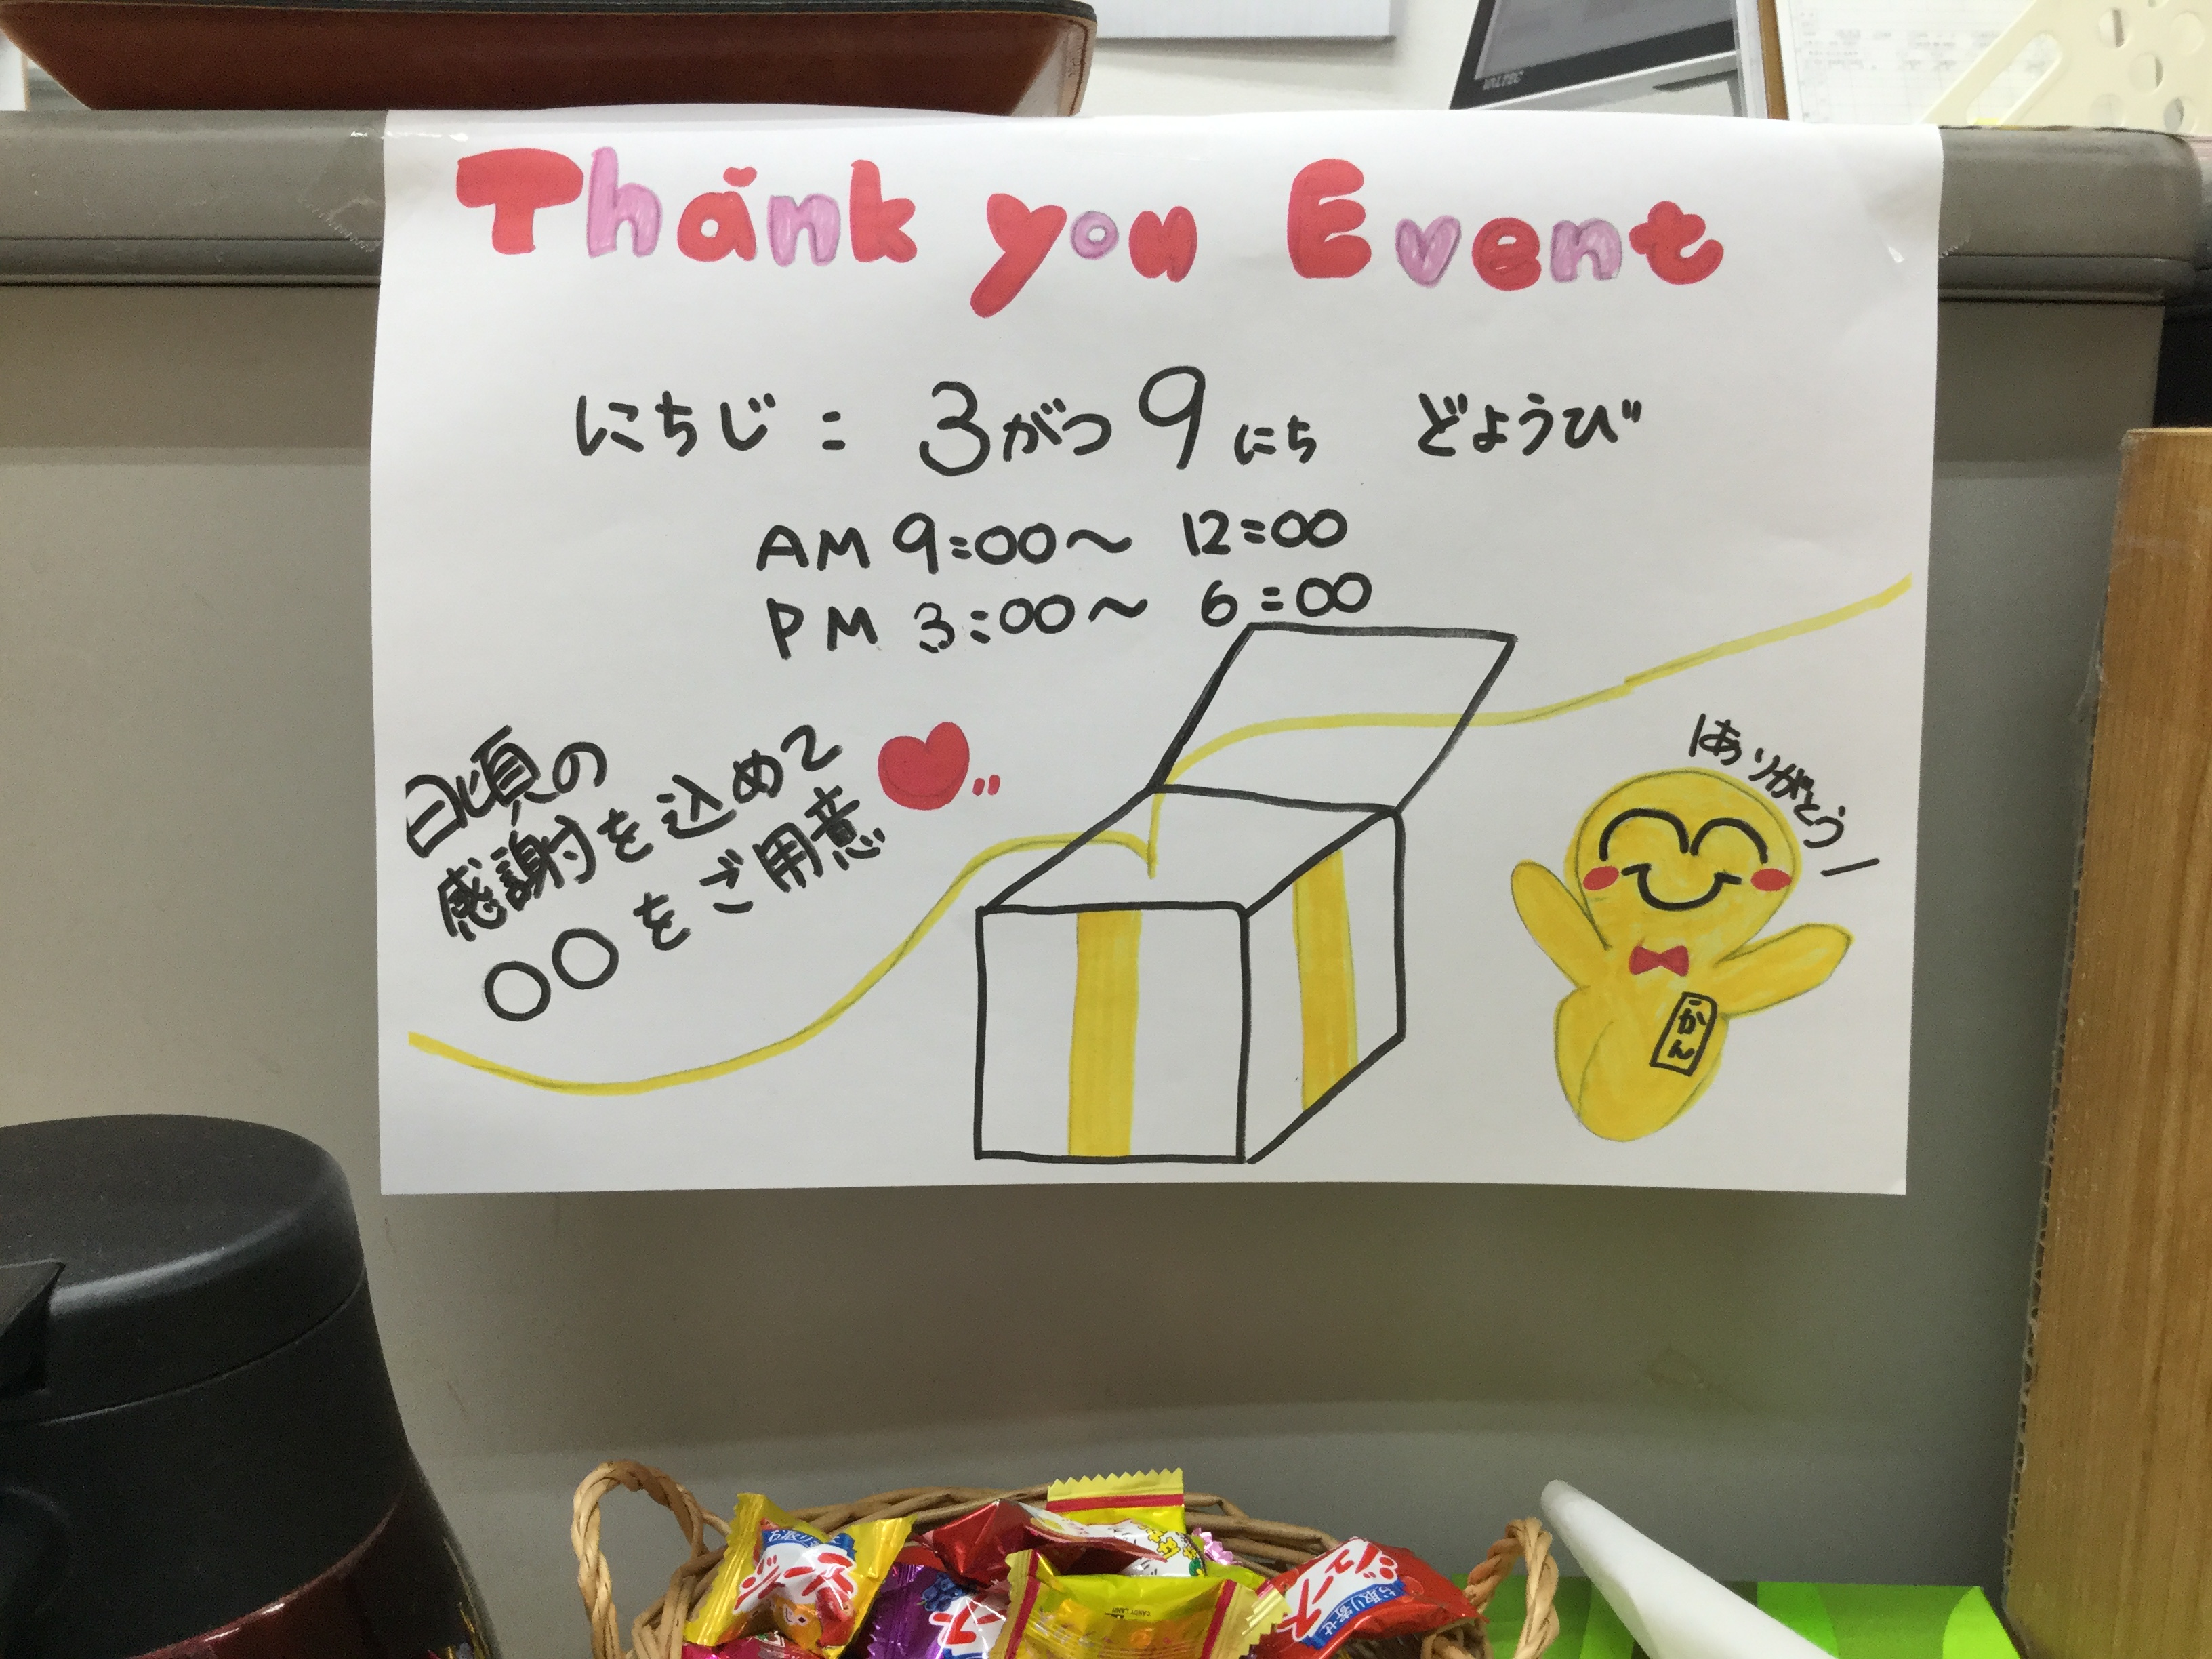 VALTEC
Thank you Event
にちじ : 3がつ9にち どようび
AM 9:00〜 12:00
PM 3:00〜 6:00
日頃の
感謝を込めて
〇〇をご用意
ありがとう
かん
お取り寄せ
ジュース
CANDY LAND